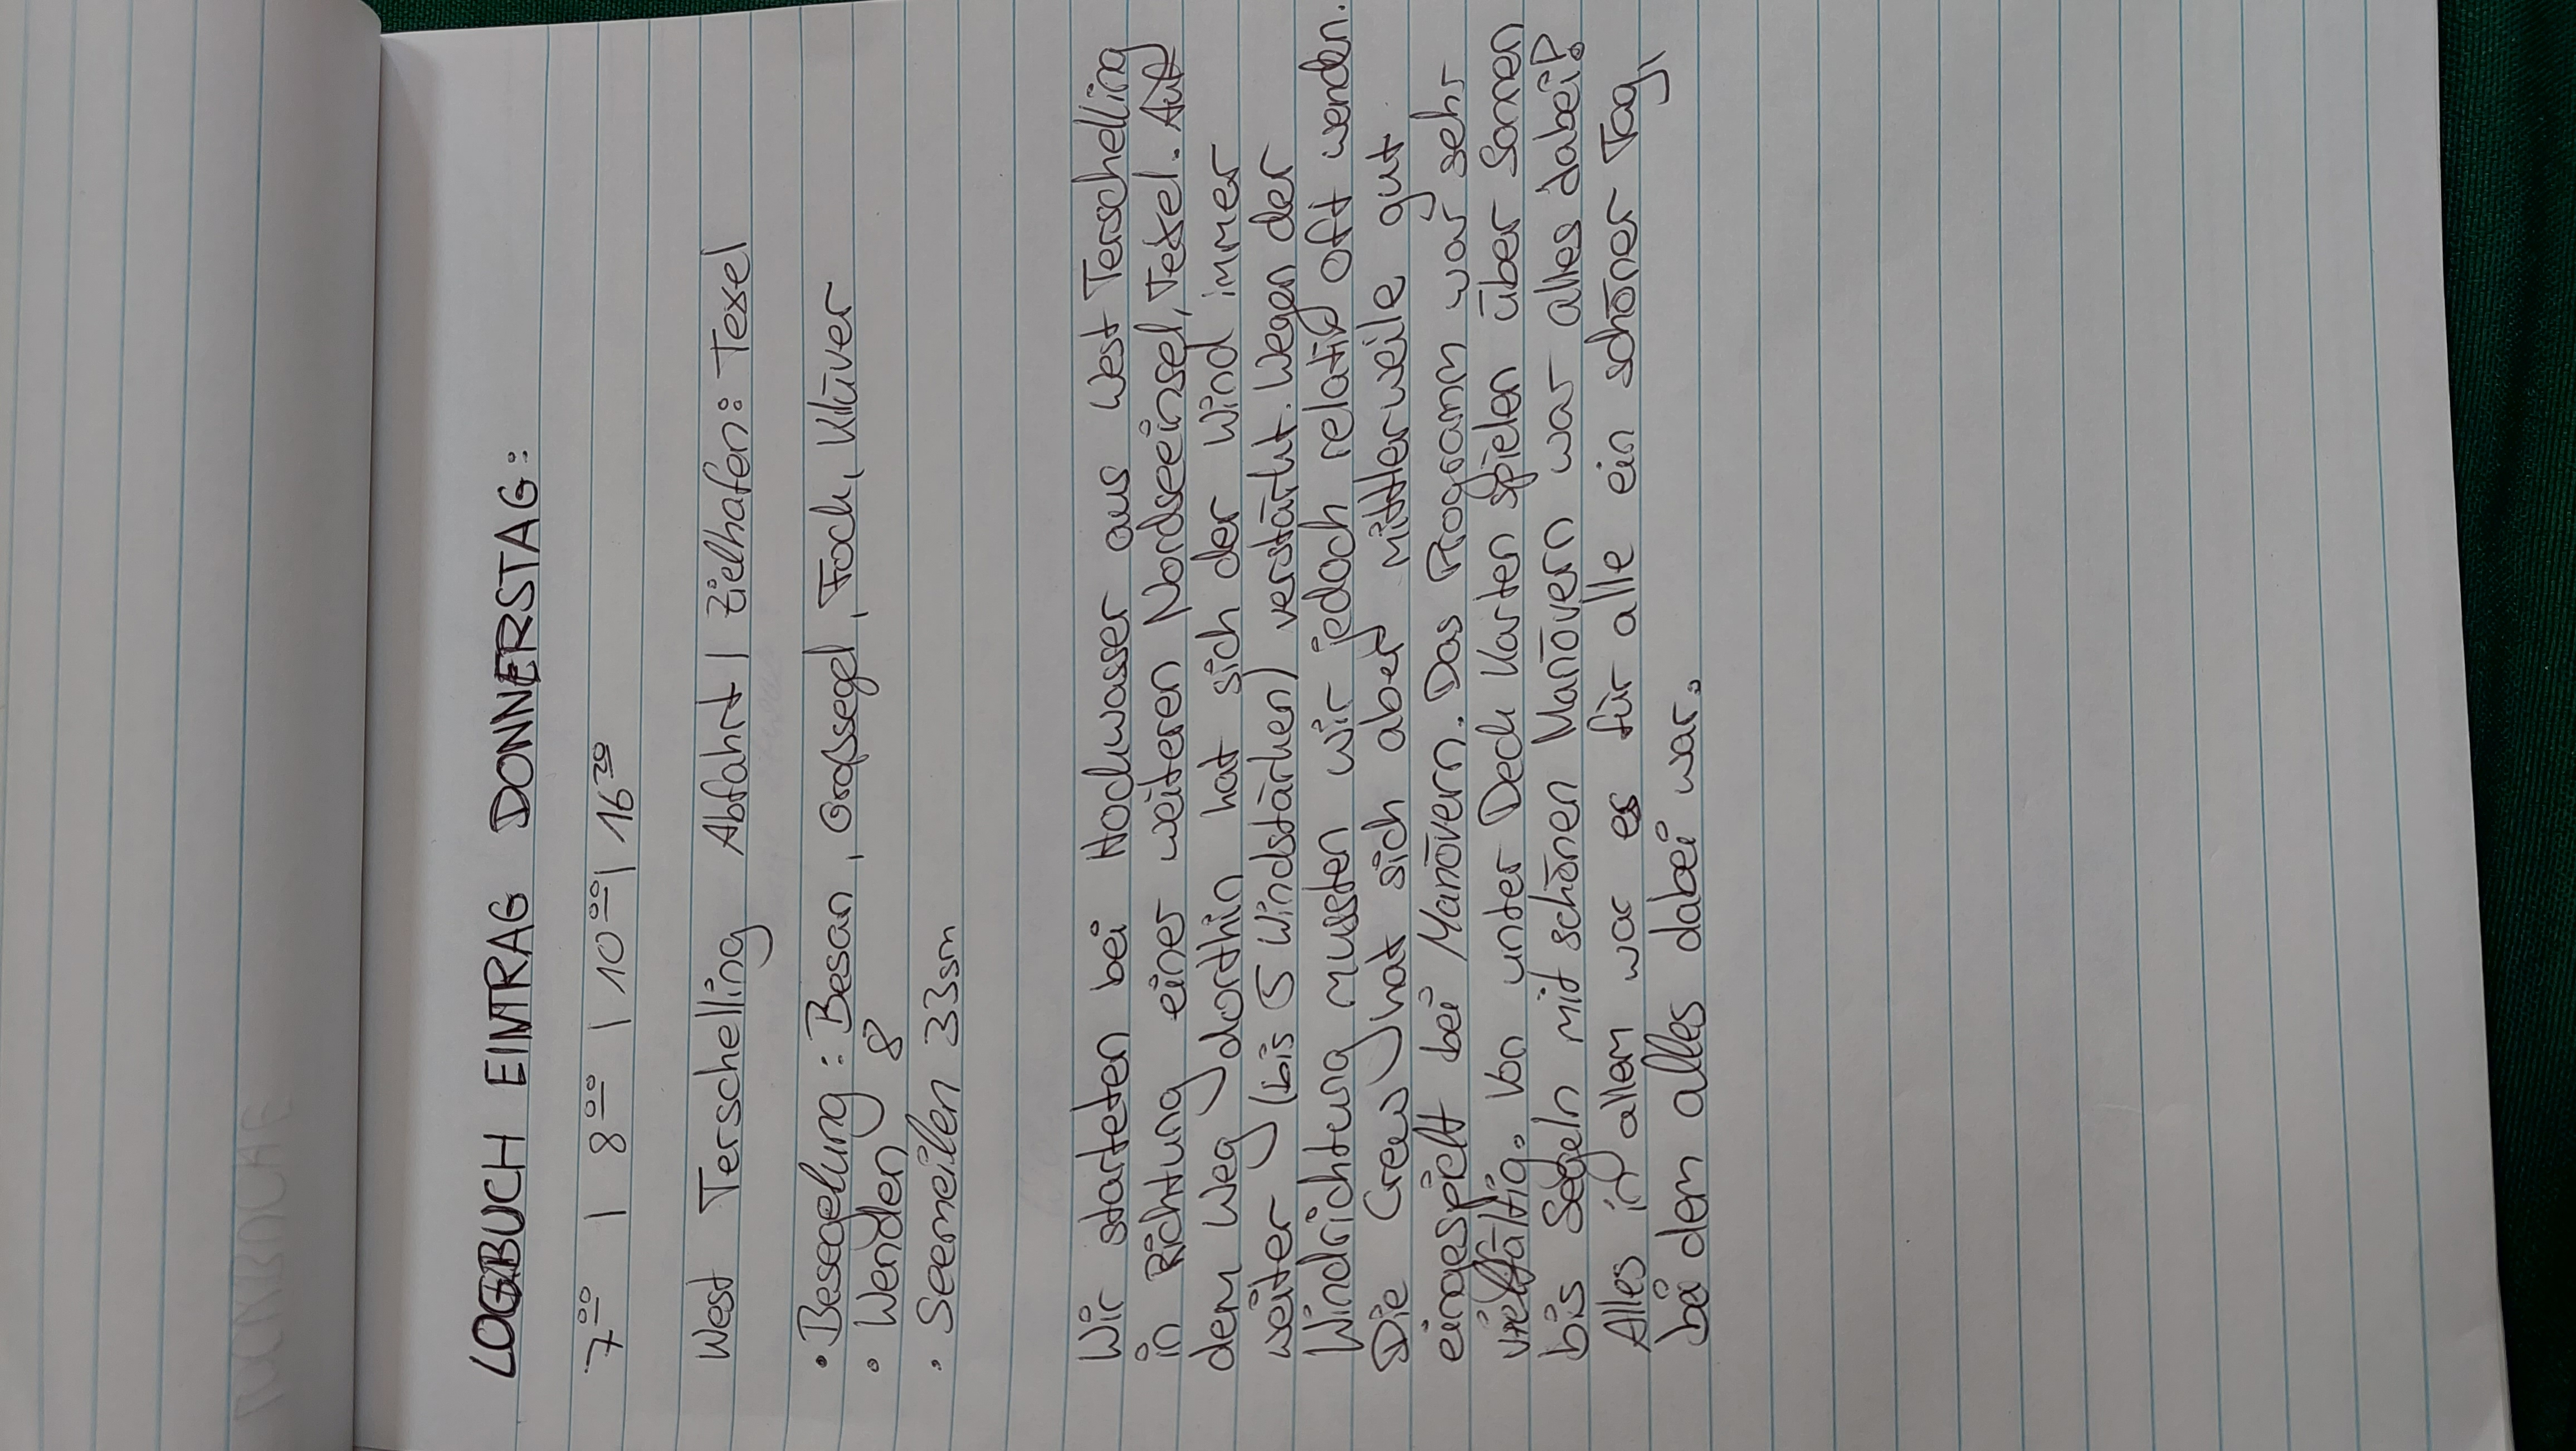 LOGBUCH EINTRAG DONNERSTAG:
7⁰⁰ | 8⁰⁰ | 10⁰⁰ | 16³⁰
West Terschelling Abfahrt | Zielhafen: Texel
• Besegelung: Besan, Großsegel, Fock, Klüver
• Wenden 8
• Seemeilen 33sm
Wir starteten bei Hochwasser aus West Terschelling
in Richtung einer weiteren Nordseeinsel, Texel. Auf
dem Weg dorthin hat sich der Wind immer
weiter (bis 5 Windstärken) verstärkt. Wegen der
Windrichtung mussten wir jedoch relativ oft wenden.
Die Crew hat sich aber mittlerweile gut
eingespielt bei Manövern. Das Programm war sehr
vielfältig. Von unter Deck Karten spielen über Sonnen
bis Segeln mit schönen Manövern war alles dabei!
Alles in allem war es für alle ein schöner Tag,
bei dem alles dabei war.